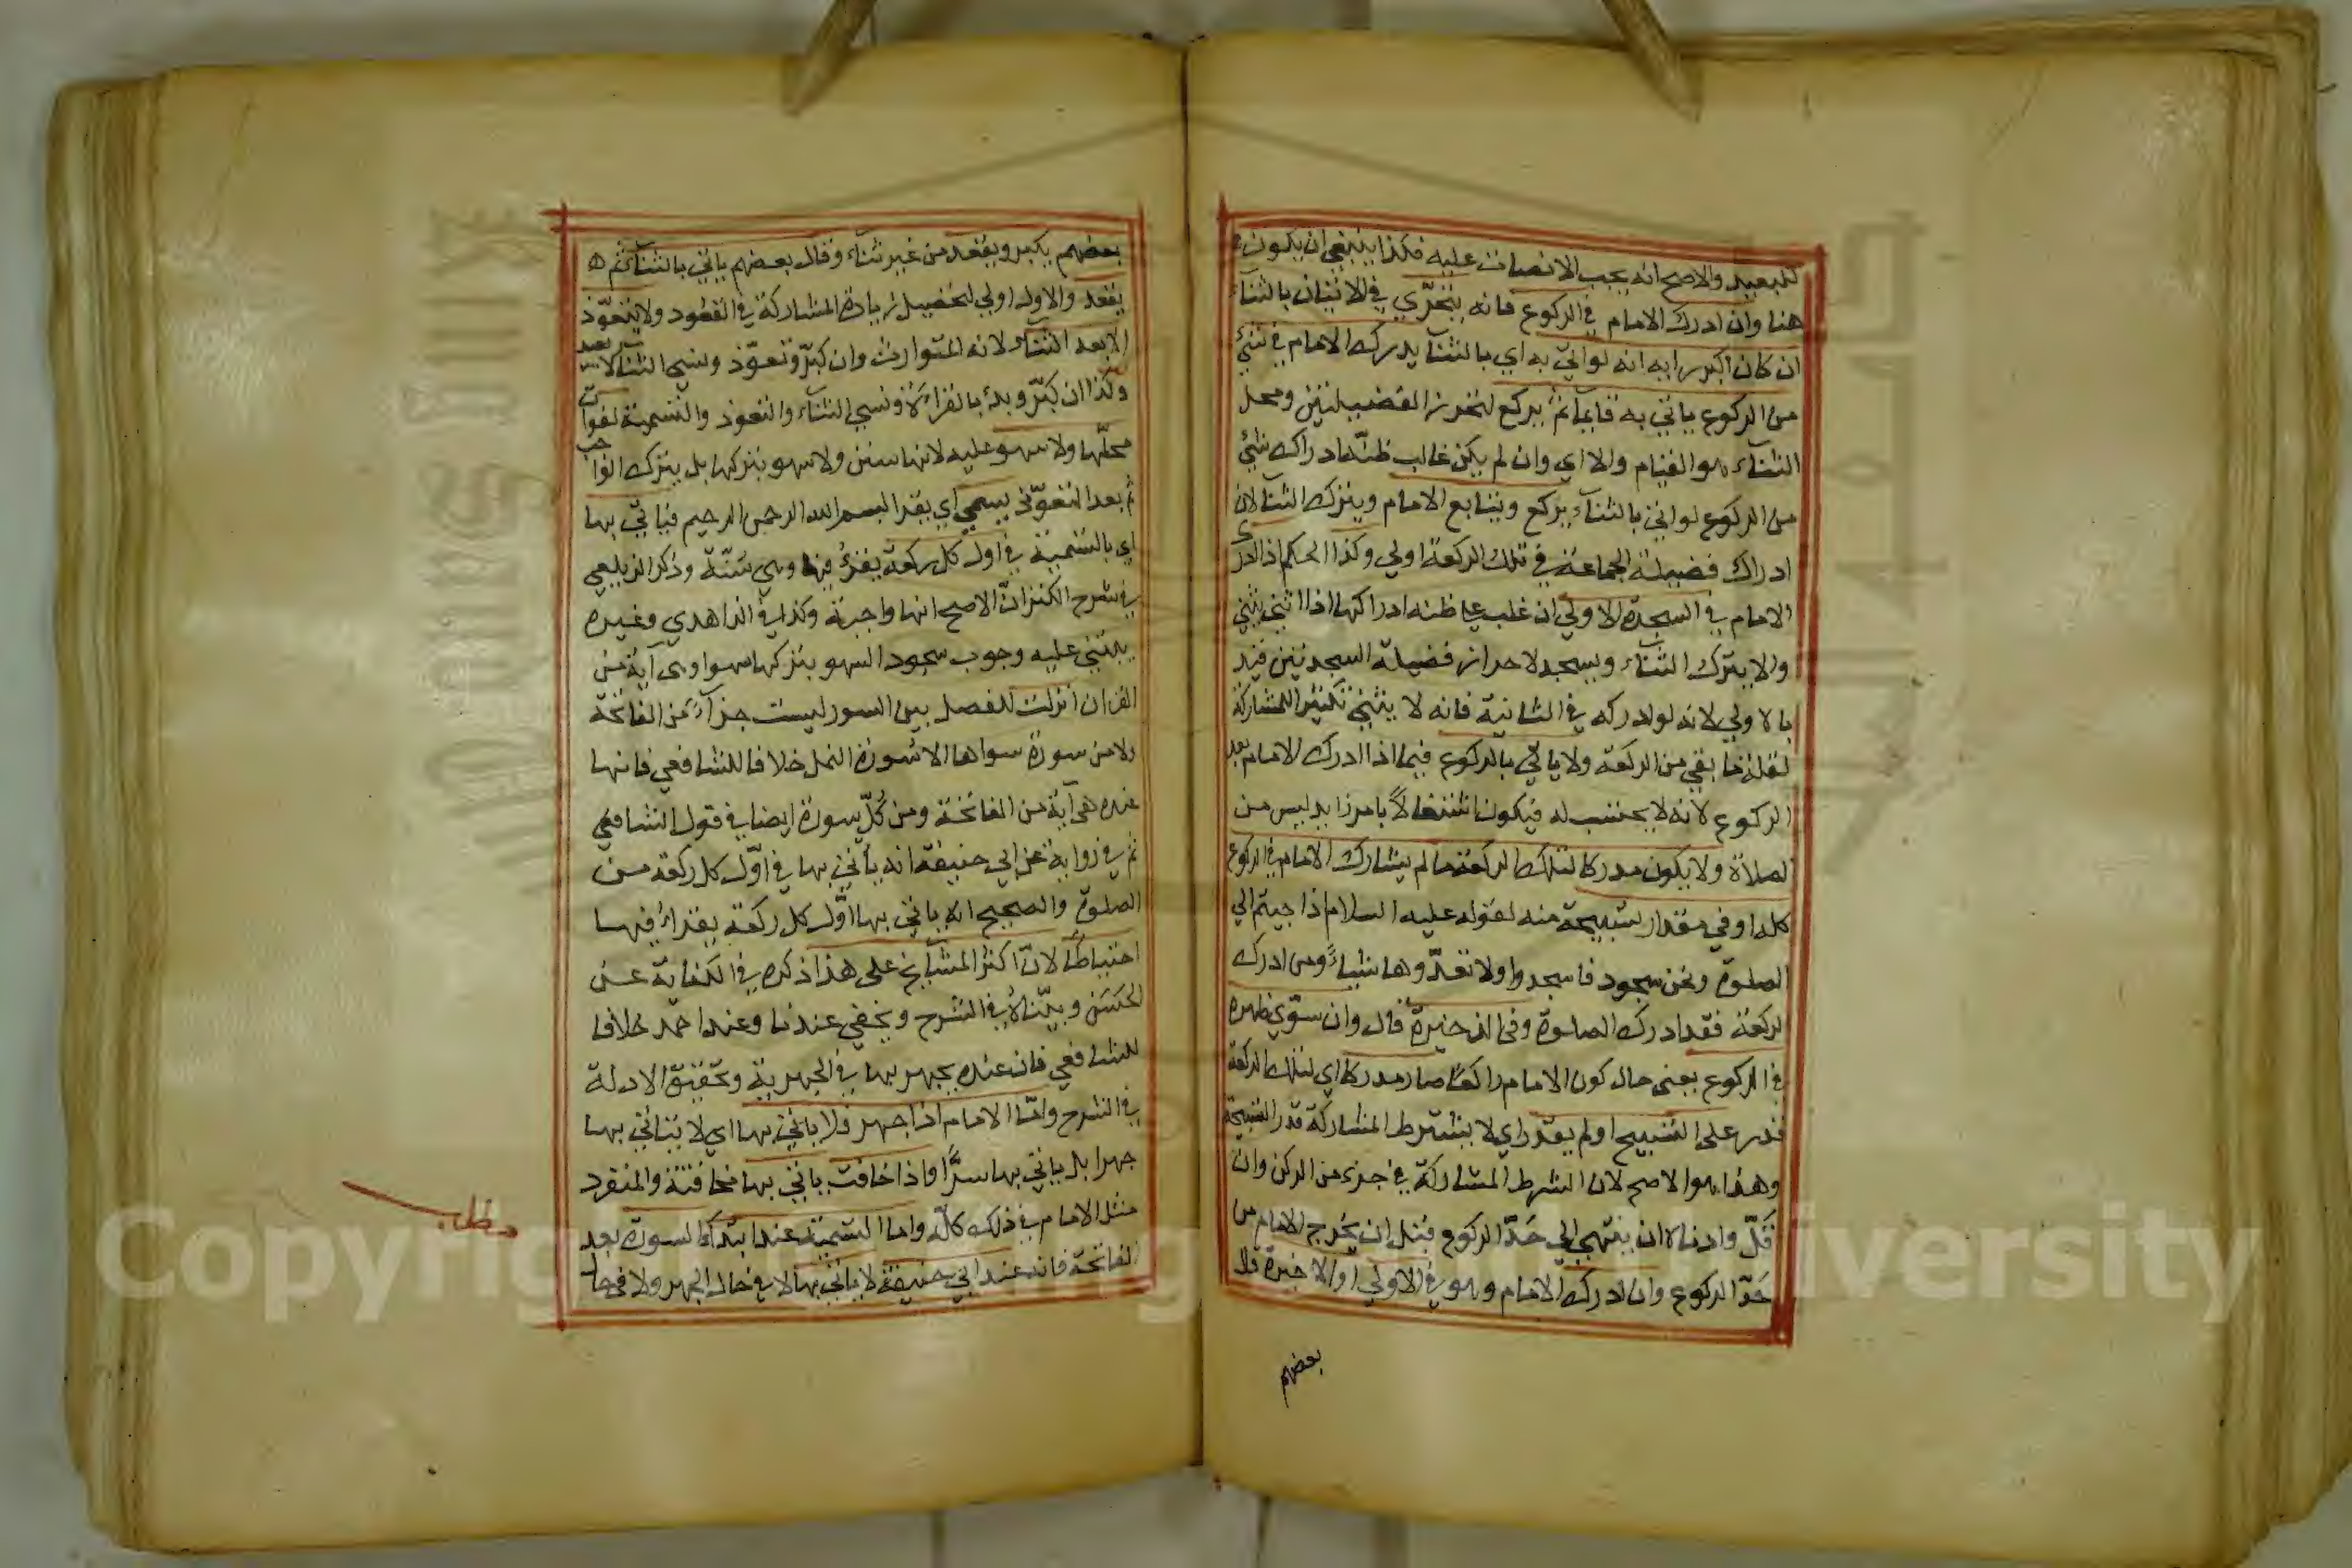 للبعيد والاصح انه يجب الانصات عليه فكذا ينبغي ان يكون
هنا وان ادرك الامام في الركوع فانه يتحرّي في الاتيان بالثناء
ان كان اكبر رايه انه لو اتي به اي بالثناء يدرك الامام في شئ
من الركوع ياتي به قايما ثم يركع لتحرز الفضيلتين ومحل
الثناء هو القيام والا اي وان لم يكن غالب ظنه ادراك شئ
من الركوع لو اتي بالثناء يركع ويتابع الامام ويترك الثنا لان
ادراك فضيلة الجماعة في تلك الركعة اولي وكذا الحكم اذا ادرك
الامام في السجدة الاولي ان غلب علي ظنه ادراكها اذا اثني يثني
والا يترك الثناء ويسجد لاحراز فضيلة السجدتين قيد
بالاولي لانه لو ادركه في الثانية فانه لا يثني تكثيرا للمشاركة
لقلة ما بقي من الركعة ولا ياتي بالركوع فيما اذا ادرك الامام بعد
الركوع لانه لا يحتسب له فيكون اشتغالاً بامر زايد ليس من
الصلاة ولا يكون مدركا لتلك الركعة ما لم يشارك الامام في الركوع
كله او في مقدار تسبيحة منه لقوله عليه السلام اذا جيتم الي
الصلوة ونحن سجود فاسجدوا ولا تعدّوها شيئاً ومن ادرك
الركعة فقد ادرك الصلوة وفي الذخيرة قال وان سوّي ظهره
في الركوع يعني حال كون الامام راكعاً صار مدركا اي لتلك الركعة
قدر على التسبيح او لم يقدر اي لا يشترط المشاركة قدر التسبيحة
وهذا هو الاصح لان الشرط المشاركة في جزء من الركن وان
قَلّ وادناه ان ينتهي الي حَدّ الركوع قبل ان يخرج الامام من
حَدّ الركوع وان ادرك الامام وهو في الاولي او الاخيرة قال
بعضهم
بعضهم يكبر ويقعد من غير ثناء وقال بعضهم ياتي بالثناء ثم
يقعد والاول اولي لتحصيل زيادة المشاركة في القعود ولا يتعوّذ
الا بعد الثناء لانه المتوارث وان كبّر وتعوّذ ونسي الثنا لا يعيد
وكذا ان كبّر وبدء بالقراءة ونسي الثناء والتعوذ والتسمية لفوات
محلّها ولا سهو عليه لانها سنن ولا سهو بتركها بل بترك الواجب
ثم بعد التعوّذ يسمي اي يقرا بسم الله الرحمن الرحيم فياتي بها
اي بالتسمية في اول كل ركعة يقرؤ فيها وهي سُنّة وذكر الزيلعي
في شرح الكنز انّ الاصح انها واجبة وكذا في الزاهدي وغيره
يبتني عليه وجوب سجود السهو بتركها سهوا وهي آية من
القران انزلت للفصل بين السور ليست جزآءً من الفاتحة
ولا من سورة سواها الا سورة النمل خلافا للشافعي فانها
عنده هي آية من الفاتحة ومن كُلّ سورة ايضا في قول الشافعي
ثم في رواية عن ابي حنيفة انه يأتي بها في اوّل كل ركعة من
الصلوة والصحيح انه ياتي بها اوّل كل ركعة يقراء فيها
احتياطا لانّ اكثر المشايخ على هذا ذكره في الكفاية عن
الحَسَن وبيّناه في الشرح ويخفي عندنا وعند احمد خلافا
للشافعي فان عنده يجهر بها في الجهرية وتحقيق الادلة
في الشرح وامّا الامام اذا جهر فلا ياتي بها اي لا يتاتي بها
جهرا بل ياتي بها سرًّا واذا خافت ياتي بها مخافتة والمنفرد
مثل الامام في ذلك كلّه واما التسمية عند ابتدآء السورة بعد
الفاتحة فانه عند ابي حنيفة لا ياتي بها لا في حال الجهر ولا في حال
مطلب
Copyright © King Saud University